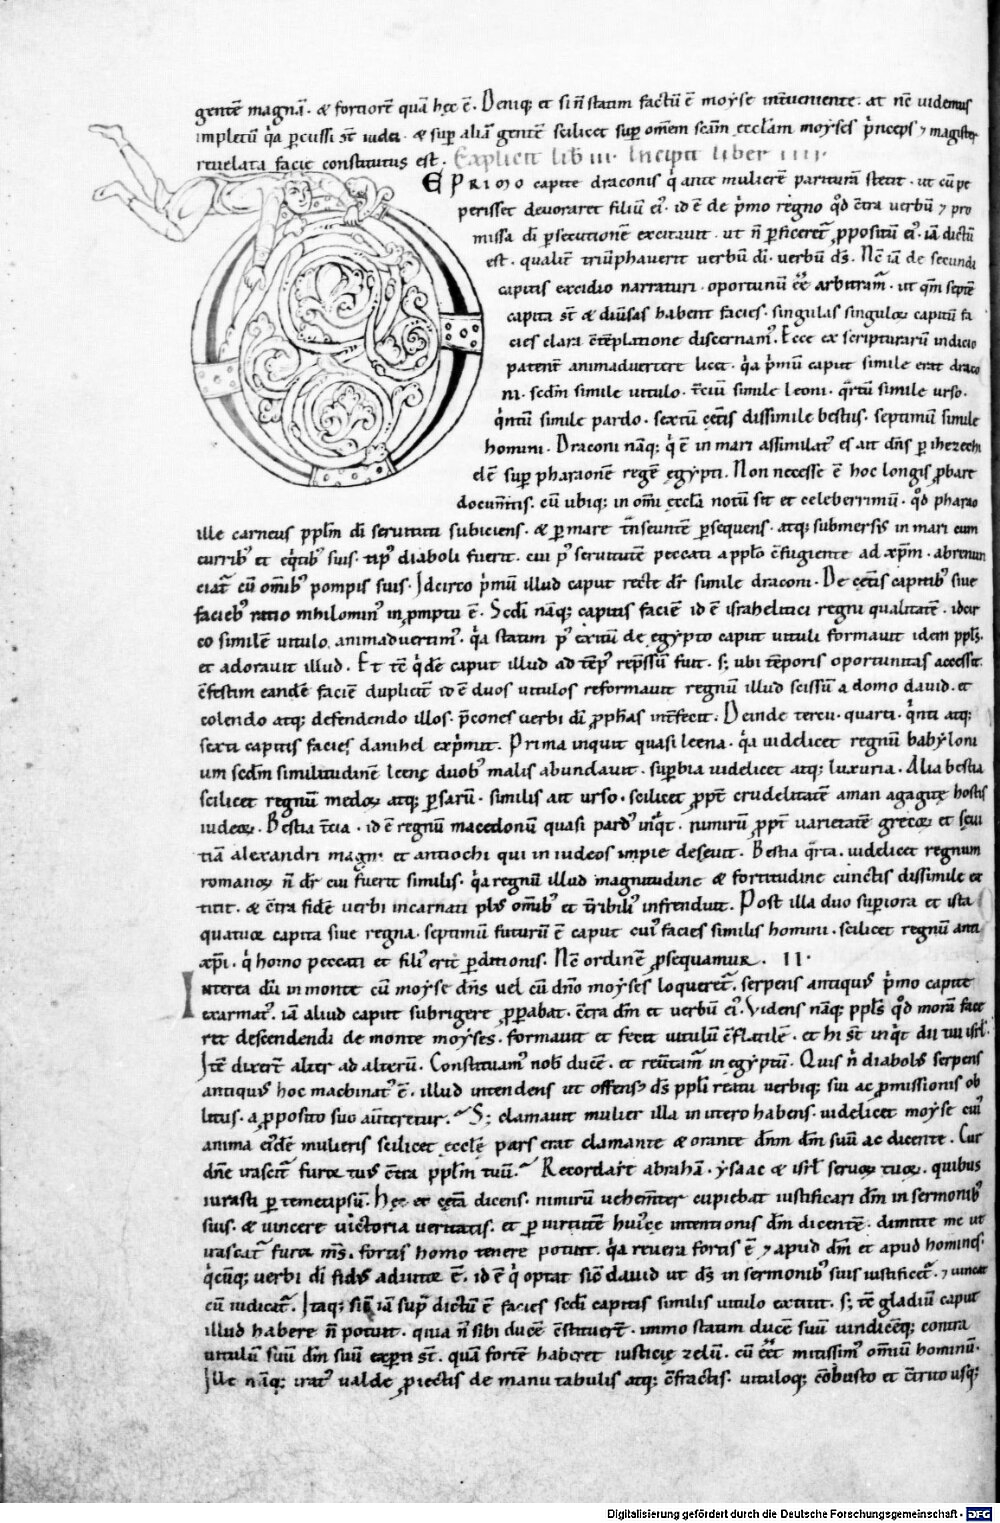 gentē magnā. & fortiorē quā hęc ē. Deniq; et si n̄ statim factū ē moyse int̄ueniente. at nc̄ videmus
impletū q̇a p̱cussi st̄ iudei. & sup̱ aliā gentē scilicet sup̱ om̄em sc̄am ęccl̄am moyses p̍nceps ⁊ magister
revelata facie constitutus est. Explicit lib̄ III. Incipit liber IIII.
E PRIMO capite draconis q̍ ante mulierē pariturā stetit. ut cū pe
perisset devoraret filiū ei᷒. id ē de p̍mo regno qd̄ c̄tra verbū ⁊ pro
missa di p̱secutionē excitavit. ut n̄ p̱ficeret᷒ ꝓpositū ei᷒. iā dictū
est. qualit̄ triūphaverit verbū di. verbū ds̄. Nc̄ iā de secundi
capitis excidio narraturi. oportunū ēē arbitram᷒. ut qm̄ septē
capita st̄ & diūsas habent facies. singulas singuloꝝ capitū fa
cies clara c̄tēplatione discernam᷒. Ecce ex scripturarū indicio
patent̄ animadvertere licet. q̇a p̍mū caput simile erat draco
ni. sedm̄ simile vitulo. t̄ciū simile leoni. q̄rtū simile urso.
q̍ntū simile pardo. sextū cęt̄is dissimile bestiis. septimū simile
homini. Draconi nāq; q̍ ē in mari assimilat᷒ es ait dn̄s p̱ ihezechi
elē sup̱ pharaonē regē ęgypti. Non necesse ē hoc longis ꝓbare
docum̄tis. cū ubiq; in om̄i ęccl̄a notū sit et celeberrimū. qd̄ pharao
ille carneus ppl̄m di servituti subiciens. & p̱ mare t̄nseuntē p̱sequens. atq; submersus in mari cum
currib᷒ et eq̍tib᷒ suis. tip᷒ diaboli fuerit. cui p᷒ servitutē peccati a pplo c̄fugiente ad xp̄m. abrenun
ciat᷒ cū om̄ib᷒ pompis suis. Idcirco p̍mū illud caput recte dr̄ simile draconi. De cęt̄is capitib᷒ sive
facieb᷒ ratio nihilomin᷒ in ꝓmptu ē. Sedi nāq; capitis faciē id ē israhelitici regni qualitatē. idcir
co similē vitulo animadvertim᷒. q̇a statim p᷒ exitū de ęgypto caput vituli formavit idem ppl̄s.
et adoravit illud. Et tc̄ q̍dē caput illud ad tēp᷒ rep̄ssū fuit. s; ubi tēporis oportunitas accessit.
c̄festim eandē faciē duplicit̄ id ē duos vitulos reformavit regnū illud scissū a domo david. et
colendo atq; defendendo illos. p̄cones verbi di ꝓphas int̄fecit. Deinde tercii. quarti. q̍nti atq;
sexti capitis facies danihel exp̍mit. Prima inquit quasi leena. q̇a videlicet regnū babyloni
um sedm̄ similitudinē leenę duob᷒ malis abundavit. sup̱bia videlicet atq; luxuria. Alia bestia
scilicet regnū medoꝝ atq; p̱sarū. similis ait urso. scilicet ꝓpt̄ crudelitatē aman agagitę hostis
iudeoꝝ. Bestia t̄cia. id ē regnū macedonū quasi pard᷒ inq̍t. nimirū ꝓpt̄ varietatē grecoꝝ et sevi
tiā alexandri magni et antiochi qui in iudeos impie deseviit. Bestia q̄rta. videlicet regnum
romanoꝝ n̄ dr̄ cui fuerit similis. q̇a regnū illud magnitudine & fortitudine cunctis dissimile ex
titit. & c̄tra fidē verbi incarnati pl᷒ om̄ib᷒ et t̄ribili᷒ infrenduit. Post illa duo sup̱iora et ista
quatuor capita sive regna. septimū futurū ē caput cui᷒ facies similis homini. scilicet regnū anti
xp̄i. q̍ homo peccati et fili᷒ erit p̱ditionis. Nc̄ ordinē ꝓsequamur. II.
Interea dū in monte cū moyse dn̄s vel cū dn̄o moyses loqueret᷒. serpens antiquus p̍mo capite
exarmat᷒. iā aliud caput subrigere ꝓp̱abat. c̄tra dm̄ et verbū ei᷒. Videns nāq; ppl̄s qd̄ morā face
ret descendendi de monte moyses. formavit et fecit vitulū c̄flatilē. et hi st̄ inq̍t dii tui isrl̄.
Itē dixer̄t alter ad alterū. Constituam᷒ nob̄ ducē. et rev̄tam᷒ in egyptū. Quis n̄ diabolus serpens
antiquus hoc machinat᷒ ē. illud intendens ut offens᷒ ds̄ ppl̄i reatu verbiq; sui ac ꝓmissionis ob
litus. a ꝓposito suo av̄teretur. S; clamavit mulier illa in utero habens. videlicet moyse cui᷒
anima ei᷒dē mulieris scilicet ęccl̄ę pars erat clamante & orante dn̄m dm̄ suū ac dicente. Cur
dn̄e irascit᷒ furor tuus c̄tra ppl̄m tuū. Recordare abrahā. ysaac & isrl̄ servoꝝ tuoꝝ. quibus
iurasti p̱ temetipsū. Hęc et cęt̄a dicens. nimirū vehem̄ter cupiebat iustificari dm̄ in sermonib᷒
suis. & vincere victoria veritatis. et p̱ virtutē hui᷒ce intentionis dm̄ dicentē. dimitte me ut
irascat᷒ furor ms̄. fortis homo tenere potuit. q̇a revera fortis ē ⁊ apud dm̄ et apud homines.
q̍cūq; verbi di fidus adiutor ē. id ē q̍ optat sic̄ david ut ds̄ in sermonib᷒ suis iustificet᷒. ⁊ vincat
cū iudicat᷒. Itaq; sic̄ iā sup̱ dictū ē facies sedi capitis similis vitulo extitit. s; tc̄ gladiū caput
illud habere n̄ potuit. quia n̄ sibi ducē c̄stituer̄t. immo statim ducē suū vindicēq; contra
vitulū suū dm̄ suū experti st̄. quā fortē haberet iusticię zelū. cū ēēt mitissim᷒ omniū hominū.
Ille nāq; irat᷒ valde ꝓiectis de manu tabulis atq; c̄fractis. vituloq; cōbusto et c̄trito usq;
Digitalisierung gefördert durch die Deutsche Forschungsgemeinschaft - DFG